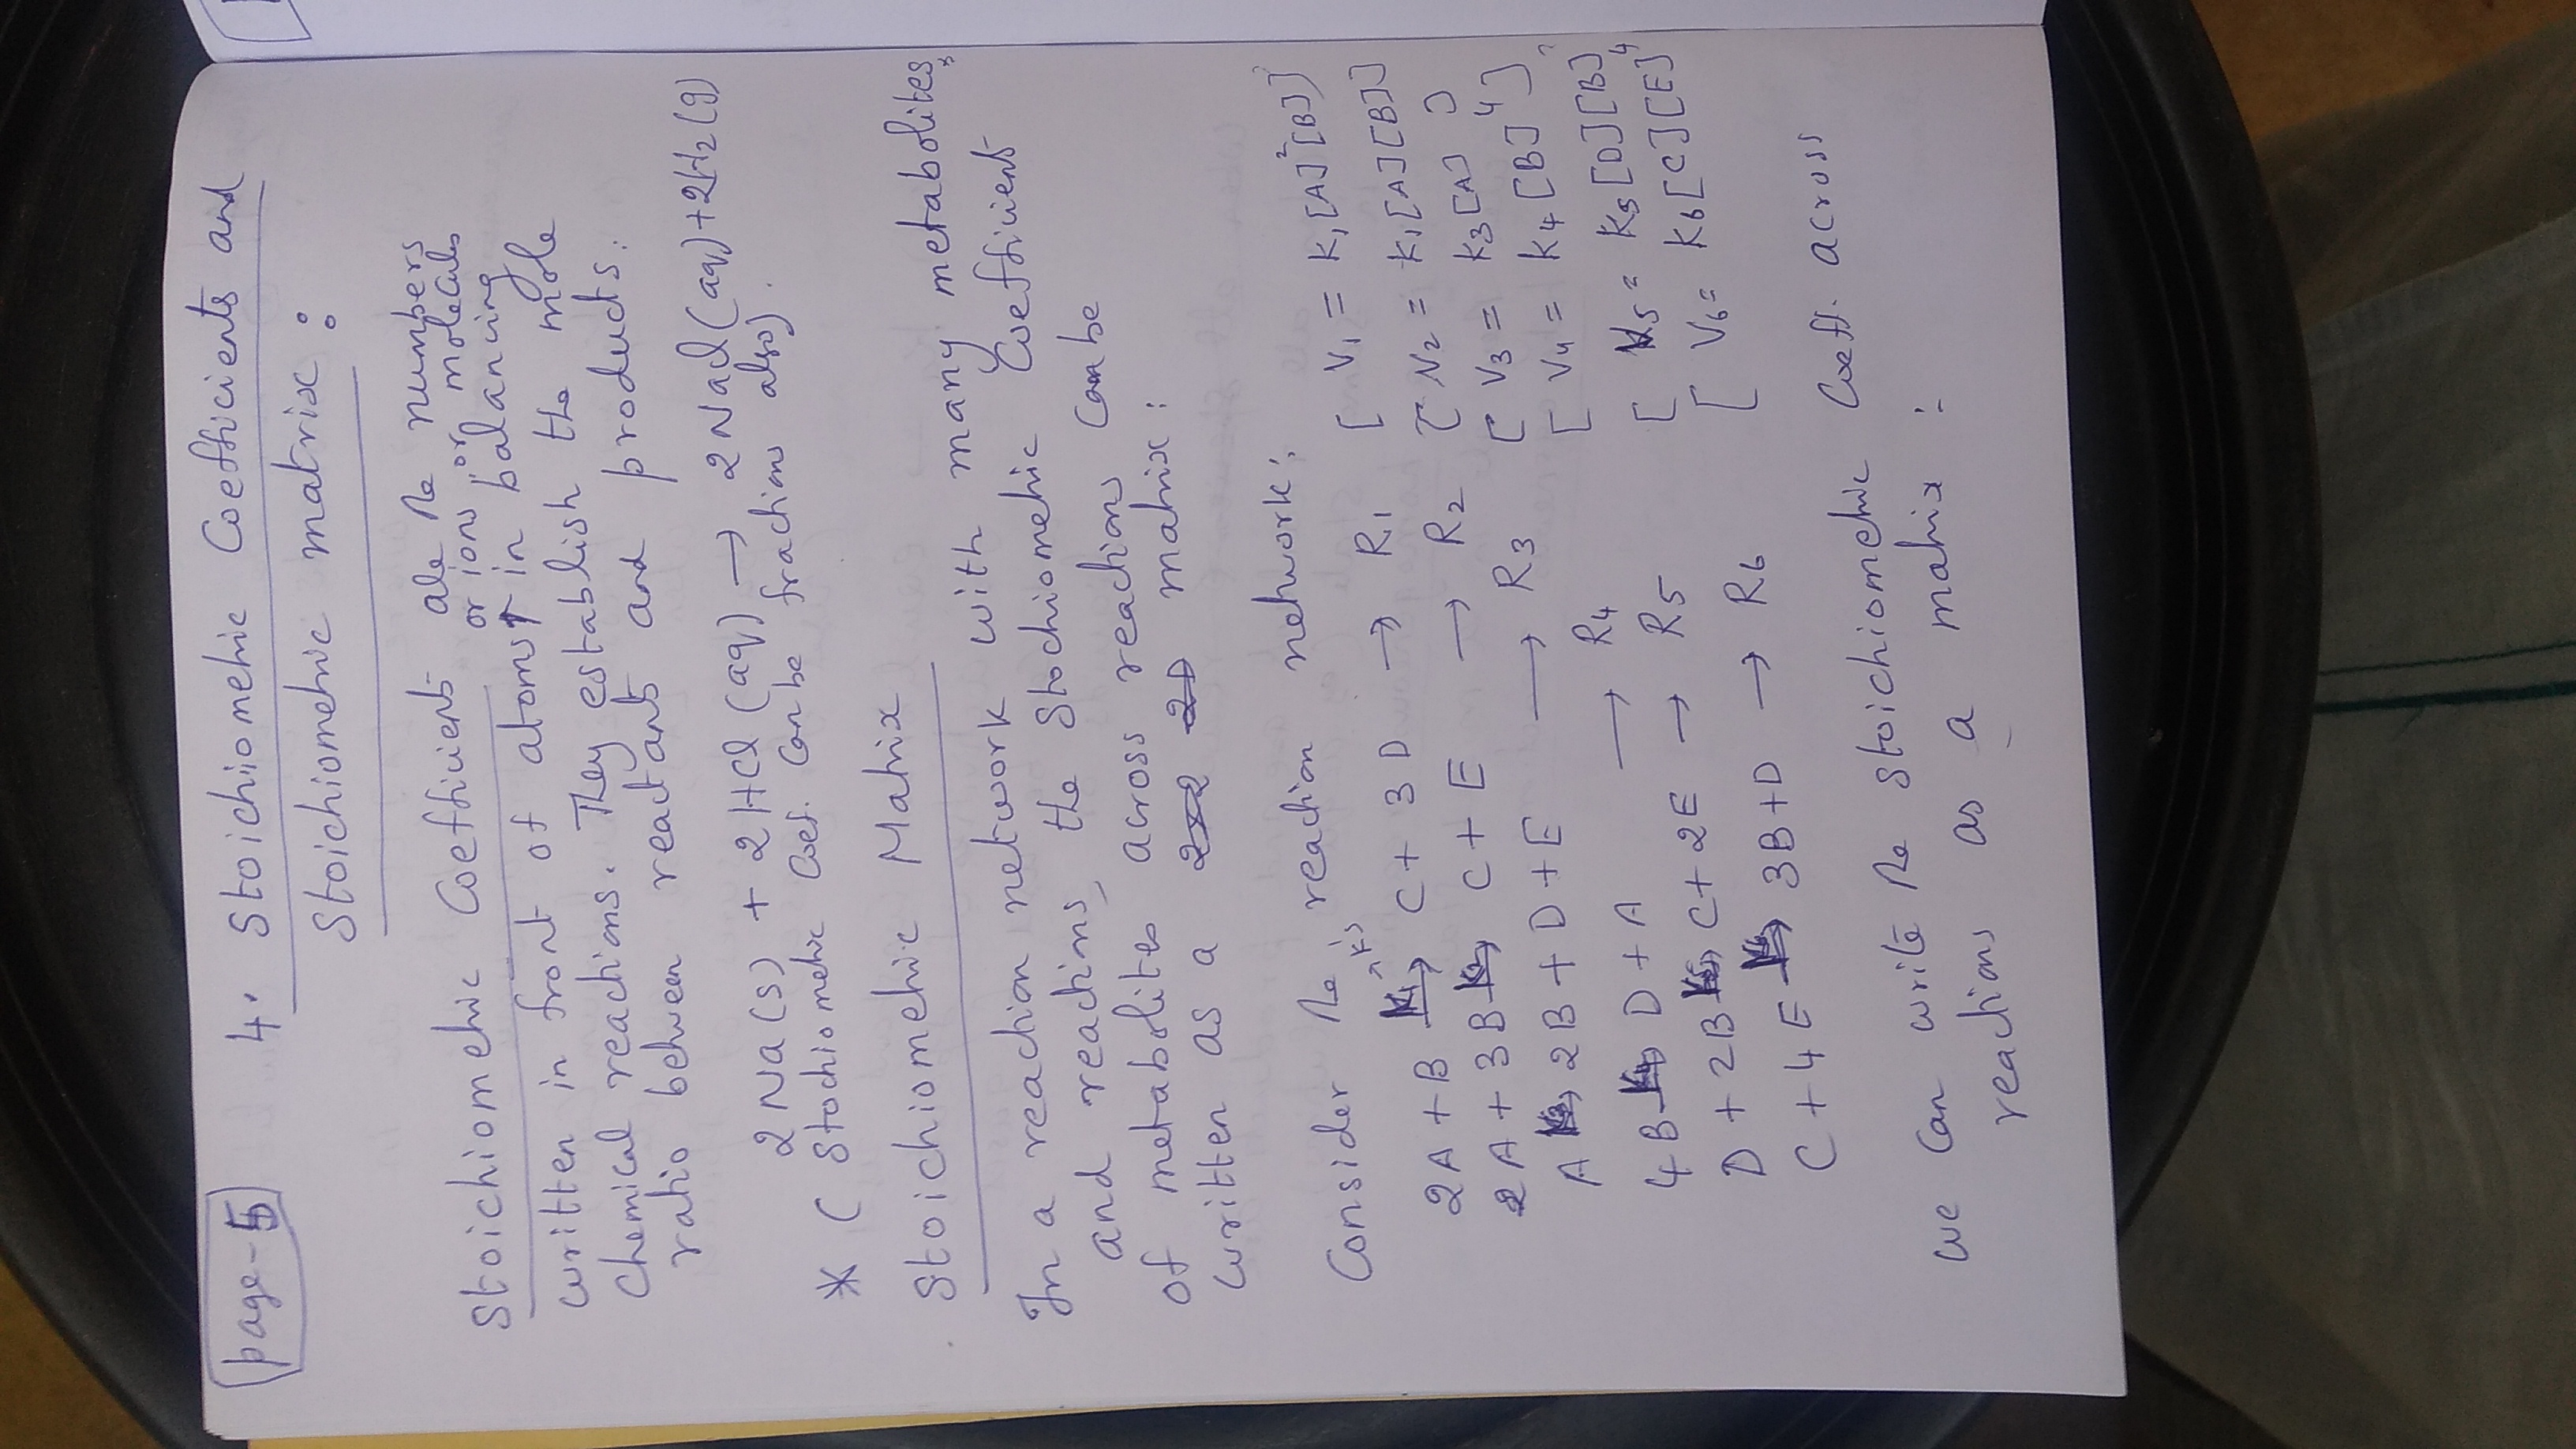 page-5
4. Stoichiometric Coefficients and
Stoichiometric matrix :
Stoichiometric Coefficients are the numbers
or ions or molecules
written in front of atoms in balancing
Chemical reactions. They establish the mole
ratio between reactants and products.
2Na(s) + 2HCl(aq) → 2NaCl(aq)+2H₂(g)
* ( Stochiometric Coef. can be fractions also).
Stoichiometric Matrix
In a reaction network with many metabolites
and reactions, the Stochiometric Coefficients
of metabolites across reactions can be
written as a matrix :
Consider the reaction network:
2A + B K₁→ C + 3D → R₁ [ V₁ = K₁[A]²[B]]
2A + 3B K₂→ C + E → R₂ [ V₂ = K₁[A][B]]
A K₃→ 2B + D + E → R₃ [ V₃ = K₃[A] ]
4B K₄→ D + A → R₄ [ V₄ = K₄[B]⁴]
D + 2B K₅→ C + 2E → R₅ [ V₅ = K₅[D][B]²
C + 4E K₆→ 3B+D → R₆ [ V₆ = K₆[C][E]⁴
we can write the stoichiometric Coeff. across
reactions as a matrix :